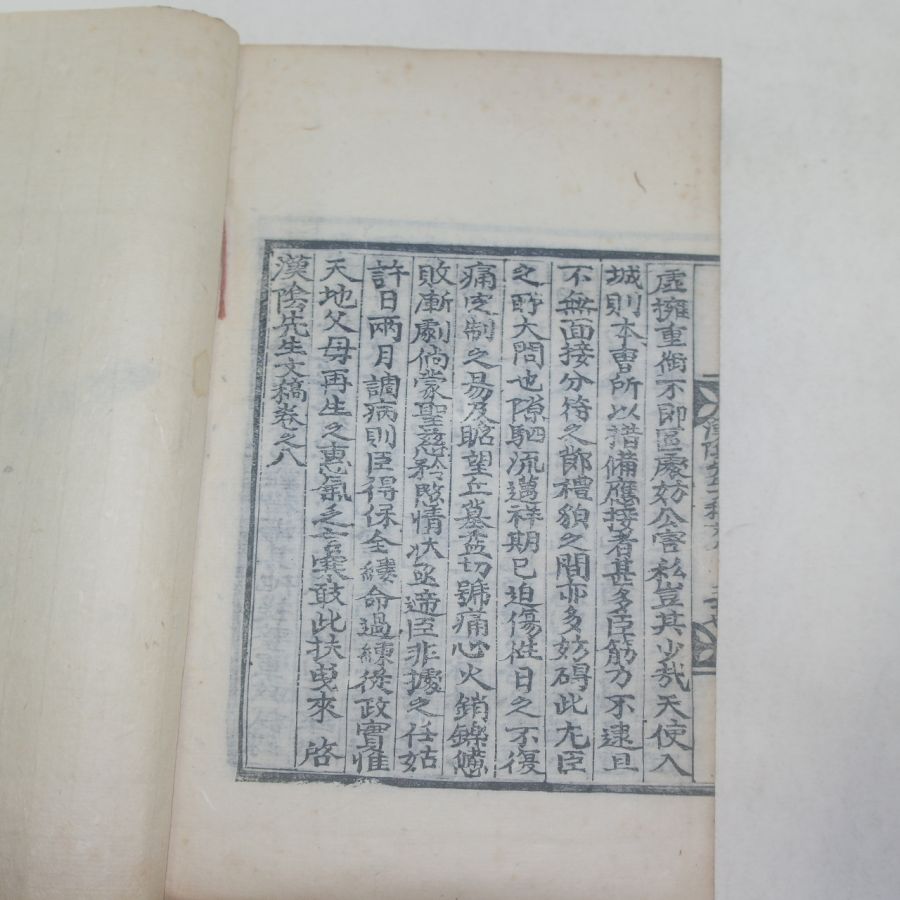 虛擁重衘不即匡廢妨公害私豈其少哉天使入
城則本曹所以措備應接者甚多臣筋力不逮且
不無面接分符之節禮貌之間亦多妨碍此尤臣
之所大悶也隙駟流邁祥期已迫傷徃日之不復
痛定制之易及瞻望丘墓益切號痛心火銷鑠憊
敗漸劇倘蒙聖慈矜愍情狀亟遞臣非據之任姑
許日兩月調病則臣得保全縷命過練從政實惟
天地父母再生之惠氣乏言塞鼓此扶曳來 啓
漢陰先生文稿卷之八